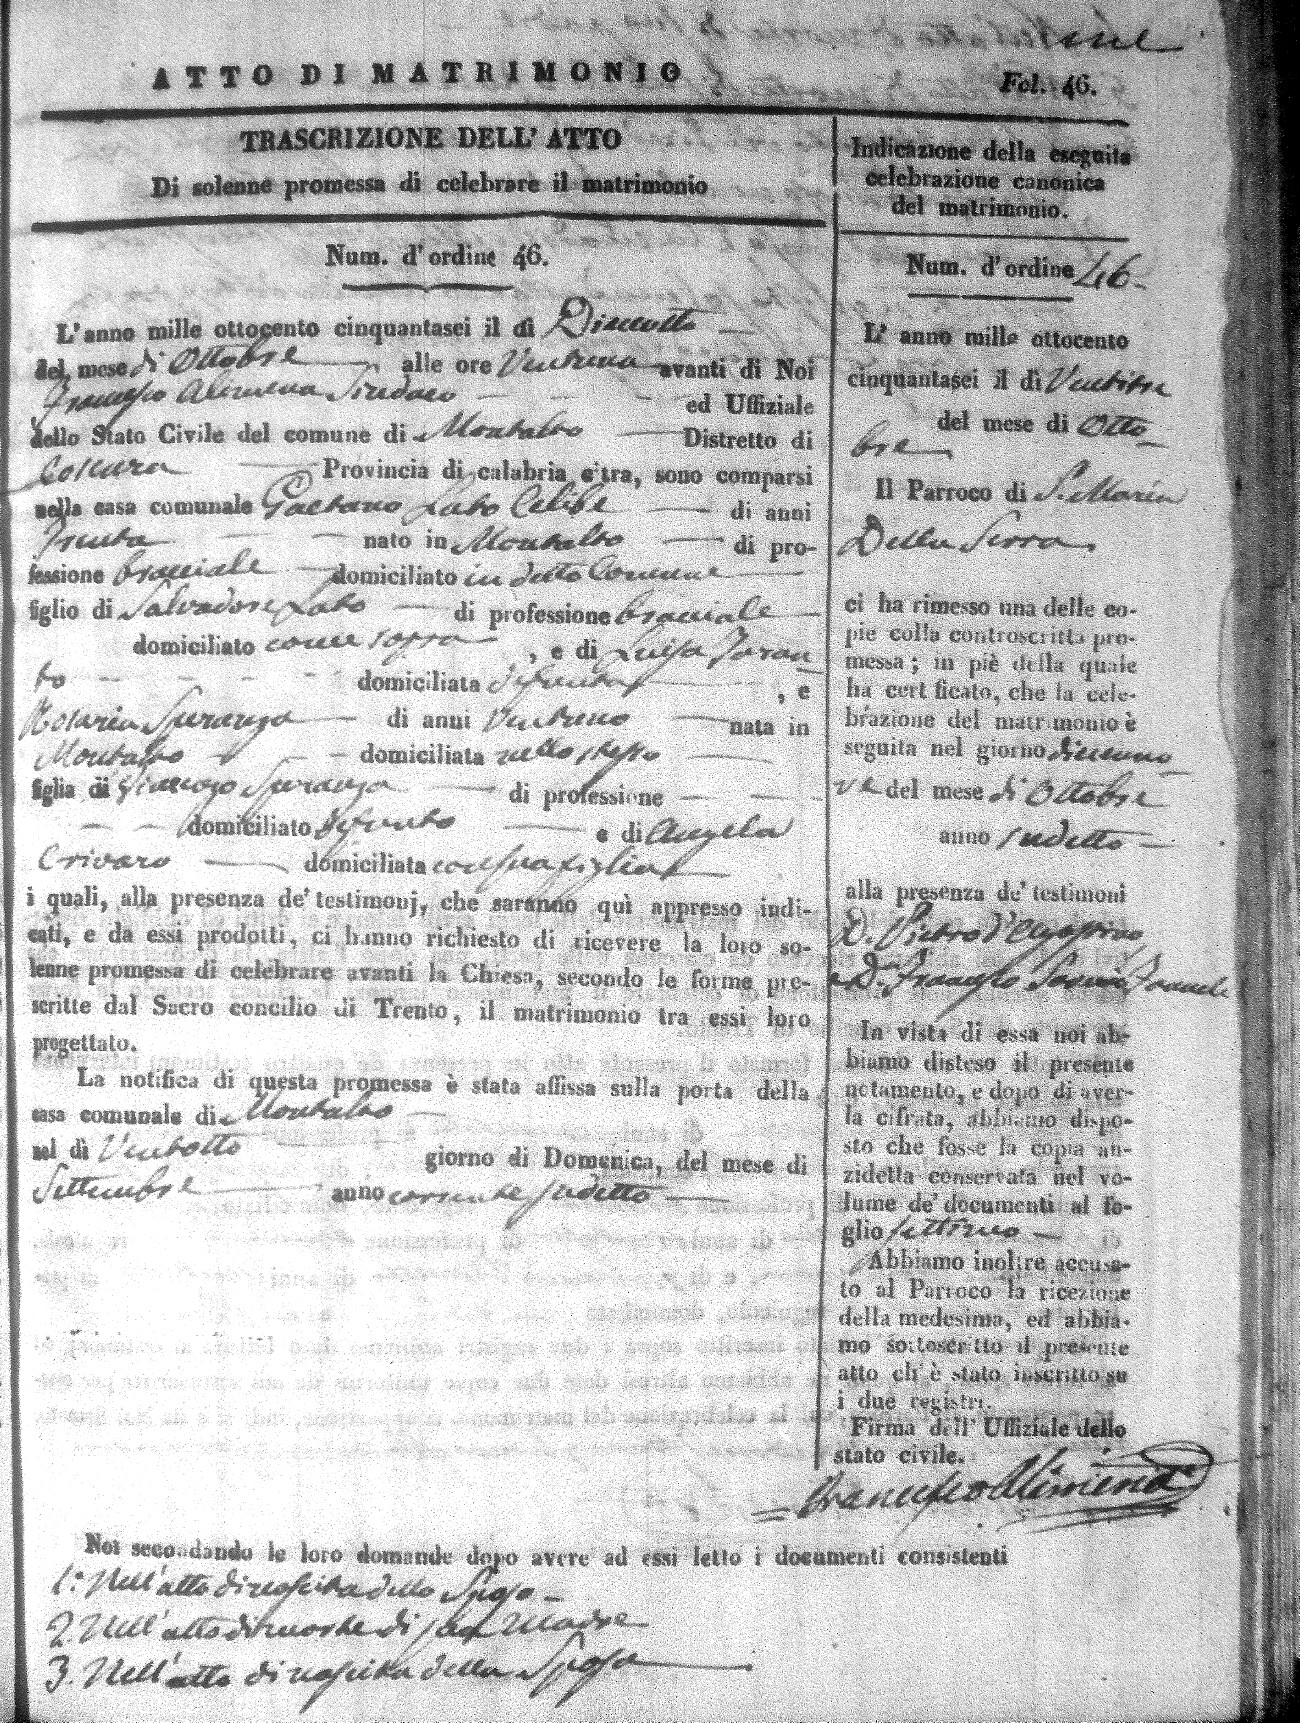 ATTO DI MATRIMONIO
Fol. 46.
TRASCRIZIONE DELL' ATTO
Di solenne promessa di celebrare il matrimonio
Num. d'ordine 46.
L'anno mille ottocento cinquantasei il dì Diciotto
del mese di Ottobre alle ore Ventuna avanti di Noi
Francesco Alimena Sindaco ed Uffiziale
dello Stato Civile del comune di Montalto Distretto di
Cosenza Provincia di calabria citra, sono comparsi
nella casa comunale Gaetano Lato Celibe di anni
Trenta nato in Montalto di pro-
fessione bracciale domiciliato in detto Comune
figlio di Salvadore Lato di professione bracciale
domiciliato come sopra, e di Luisa Taran
to domiciliata defunta, e
Rosaria Speranza di anni Ventuno nata in
Montalto domiciliata nello stesso
figlia di Speranza di professione
domiciliato defunto e di Angela
Crivaro domiciliata con sua figlia
i quali, alla presenza de' testimonj, che saranno quì appresso indi-
cati, e da essi prodotti, ci hanno richiesto di ricevere la loro so-
lenne promessa di celebrare avanti la Chiesa, secondo le forme pre-
scritte dal Sacro concilio di Trento, il matrimonio tra essi loro
progettato.
La notifica di questa promessa è stata affissa sulla porta della
casa comunale di Montalto
nel dì Ventotto giorno di Domenica, del mese di
Settembre anno corrente sudetto
Indicazione della eseguita
celebrazione canonica
del matrimonio.
Num. d'ordine 46.
L' anno mille ottocento
cinquantasei il dì Ventitre
del mese di Otto
bre
Il Parroco di S. Maria
Della Serra.
ci ha rimesso una delle co-
pie colla controscritta pro-
messa; in piè della quale
ha cert ficato, che la cele-
brazione del matrimonio è
seguita nel giorno dicianno
ve del mese di Ottobre
anno sudetto
alla presenza de' testimoni
D. Pietro d'Agostino
e Dn. Francesco
In vista di essa noi ab-
biamo disteso il presente
notamento, e dopo di aver-
la cifrata, abbiamo dispo-
sto che fosse la copia an-
zidetta conservata nel vo-
lume de' documenti al fo-
glio settimo
Abbiamo inoltre accusa-
to al Parroco la ricezione
della medesima, ed abbia-
mo sottoscritto il presente
atto ch' è stato inscritto su
i due registri.
Firma dell' Uffiziale dello
stato civile.
Francesco Alimena
Noi secondando le loro domande dopo avere ad essi letto i documenti consistenti
1. Nell' atto di nascita dello Sposo
2. Nell' atto di morte di sua Madre
3. Nell' atto di nascita della Sposa